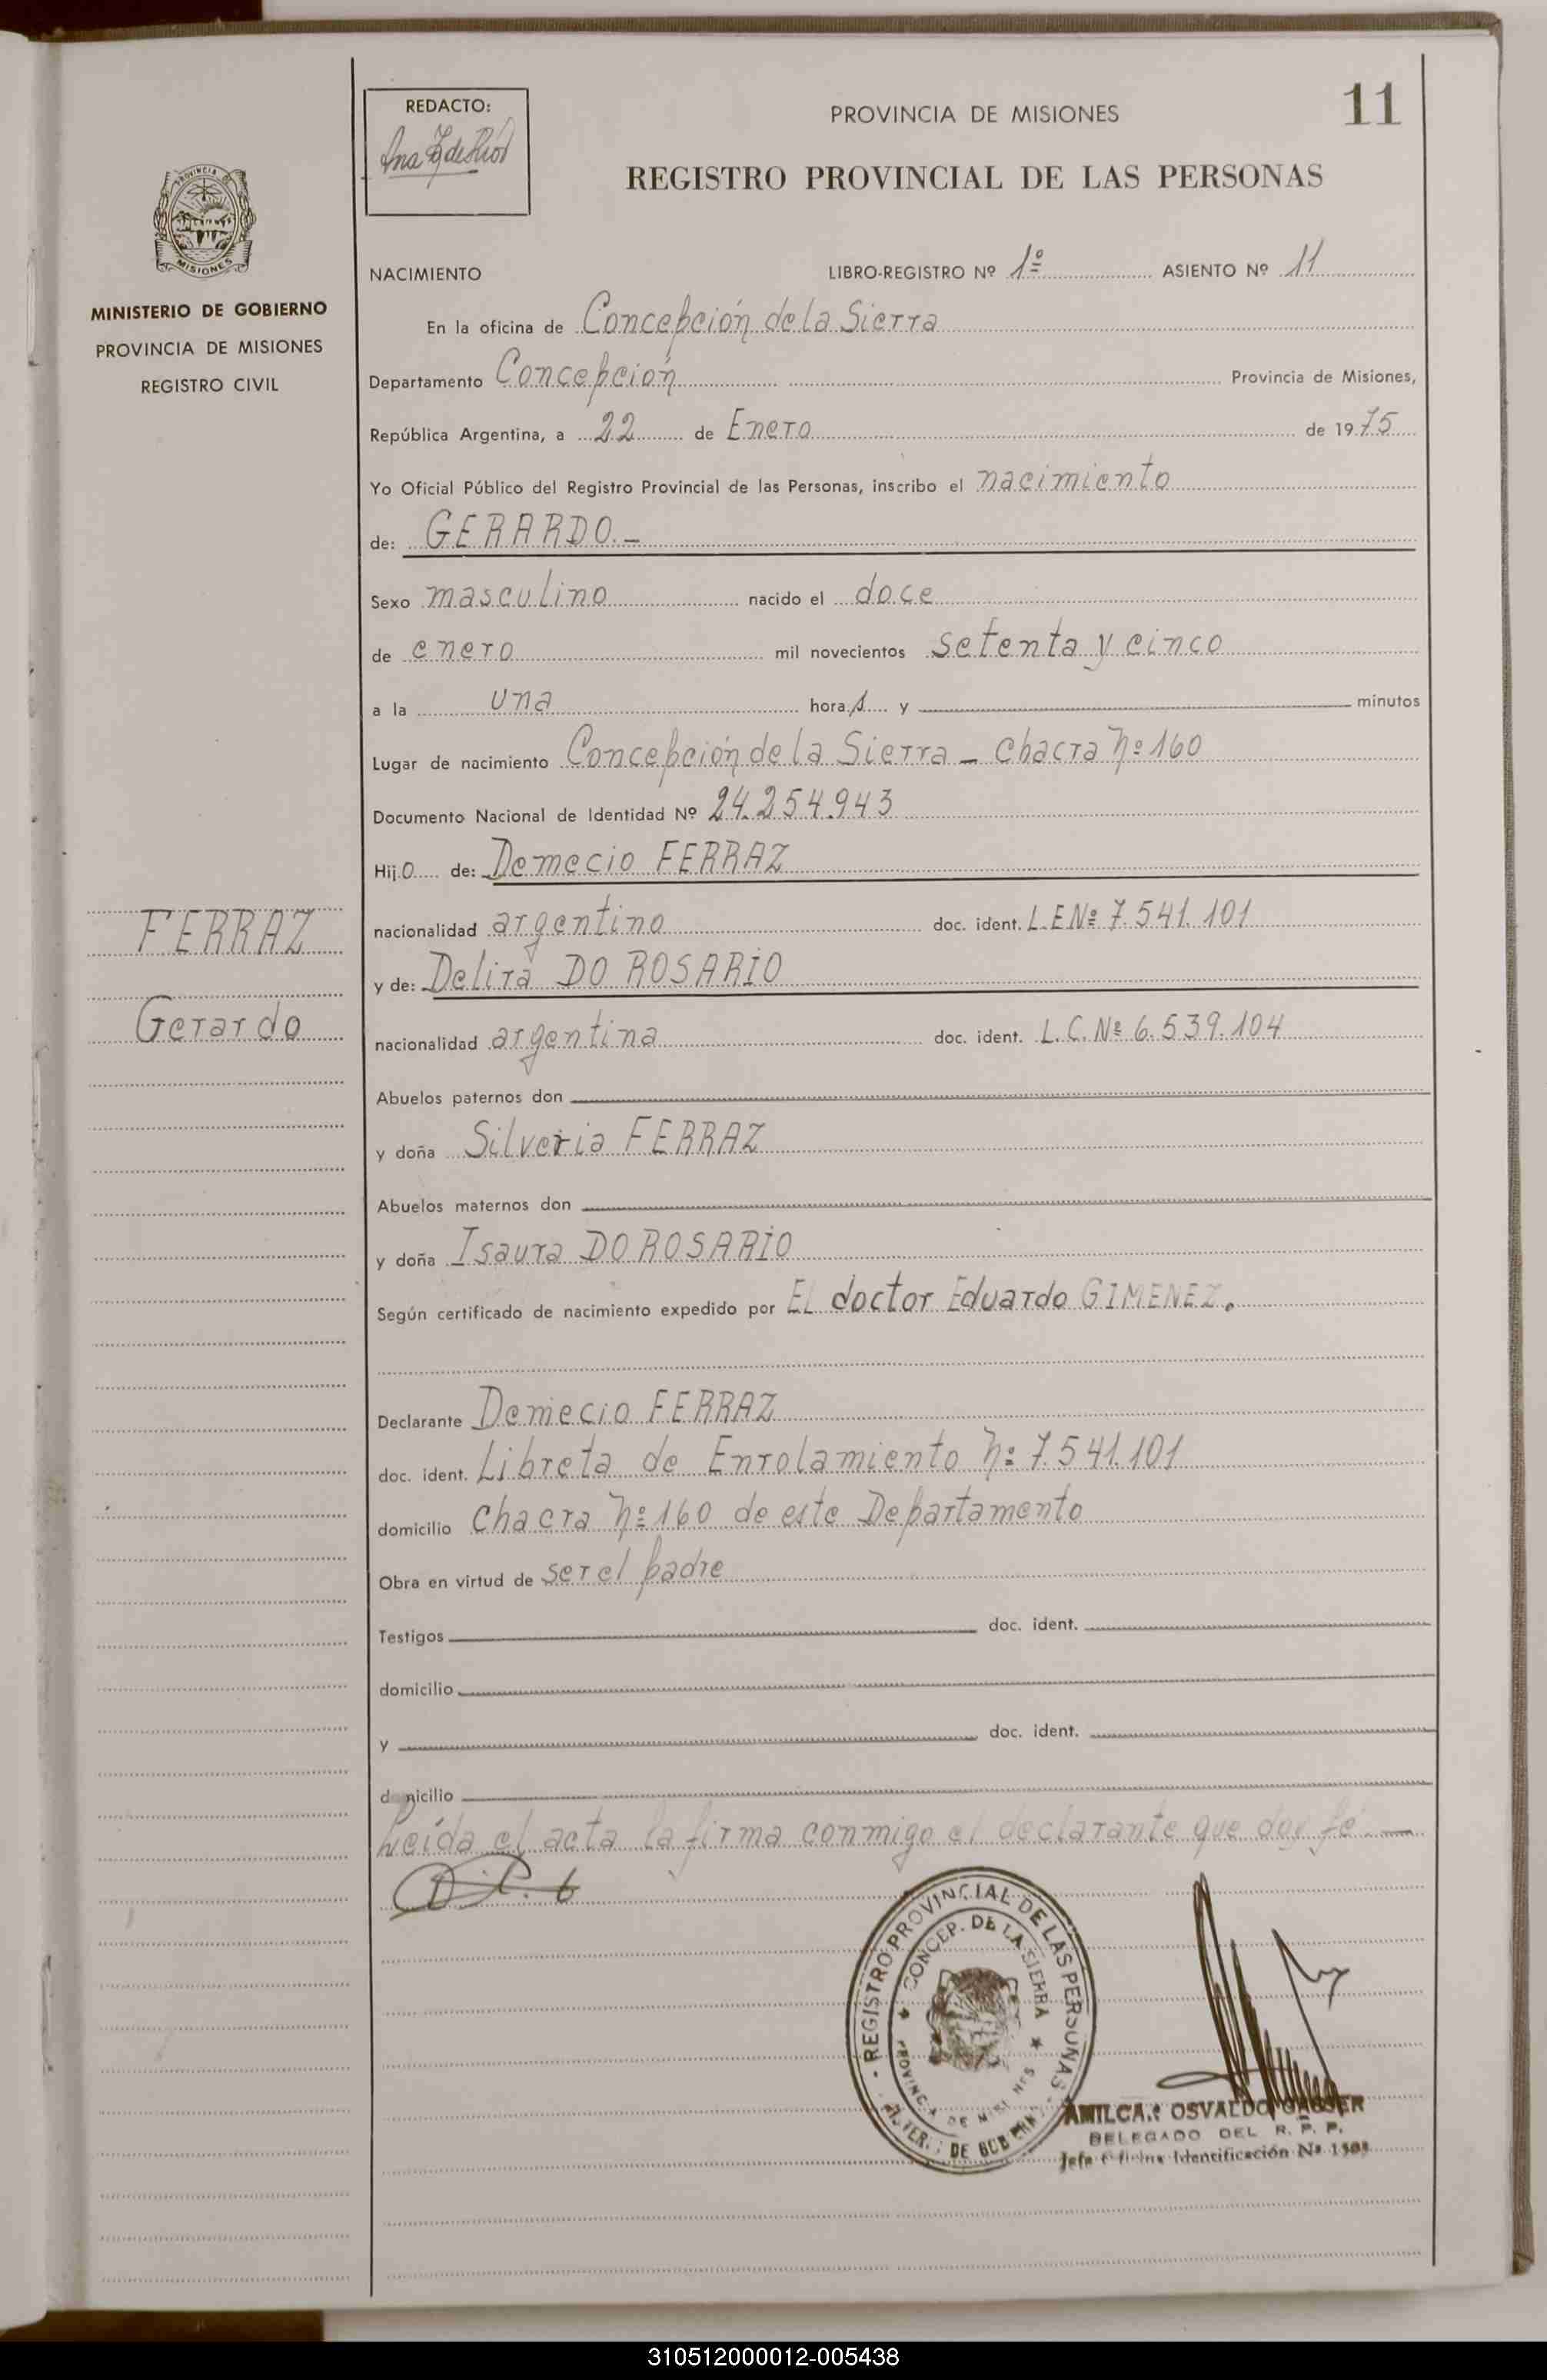 REDACTO:
PROVINCIA DE MISIONES
11
REGISTRO PROVINCIAL DE LAS PERSONAS
PROVINCIA DE
MISIONES
MINISTERIO DE GOBIERNO
PROVINCIA DE MISIONES
REGISTRO CIVIL
NACIMIENTO LIBRO-REGISTRO Nº 1º ASIENTO Nº 11
En la oficina de Concepción de la Sierra
Departamento Concepción Provincia de Misiones,
República Argentina, a 22 de Enero de 1975
Yo Oficial Público del Registro Provincial de las Personas, inscribo el nacimiento
de: GERARDO.-
Sexo masculino nacido el doce
de enero mil novecientos setenta y cinco
a la una hora y minutos
Lugar de nacimiento Concepción de la Sierra - chacra Nº 160
Documento Nacional de Identidad Nº 24.254.943
Hijo de: Demecio FERRAZ
nacionalidad argentino doc. ident. L.E Nº 7.541.101
y de: Delira DO ROSARIO
nacionalidad argentina doc. ident. L.C. Nº 6.539.104
FERRAZ
Gerardo
Abuelos paternos don
y doña Silveria FERRAZ
Abuelos maternos don
y doña Isaura DO ROSARIO
Según certificado de nacimiento expedido por EL doctor Eduardo GIMENEZ.
Declarante Demecio FERRAZ
doc. ident. Libreta de Enrolamiento Nº 7.541.101
domicilio chacra Nº 160 de este Departamento
Obra en virtud de ser el padre
Testigos doc. ident.
domicilio
y doc. ident.
domicilio
Leída el acta la firma conmigo el declarante que doy fé.-
REGISTRO PROVINCIAL DE LAS PERSONAS
CONCEP. DE LA SIERRA
PROVINCIA DE MISIONES
DE GOBIERNO
OSVALDO
DELEGADO DEL R. P. P.
Jefe Oficina Identificación Nº
310512000012-005438